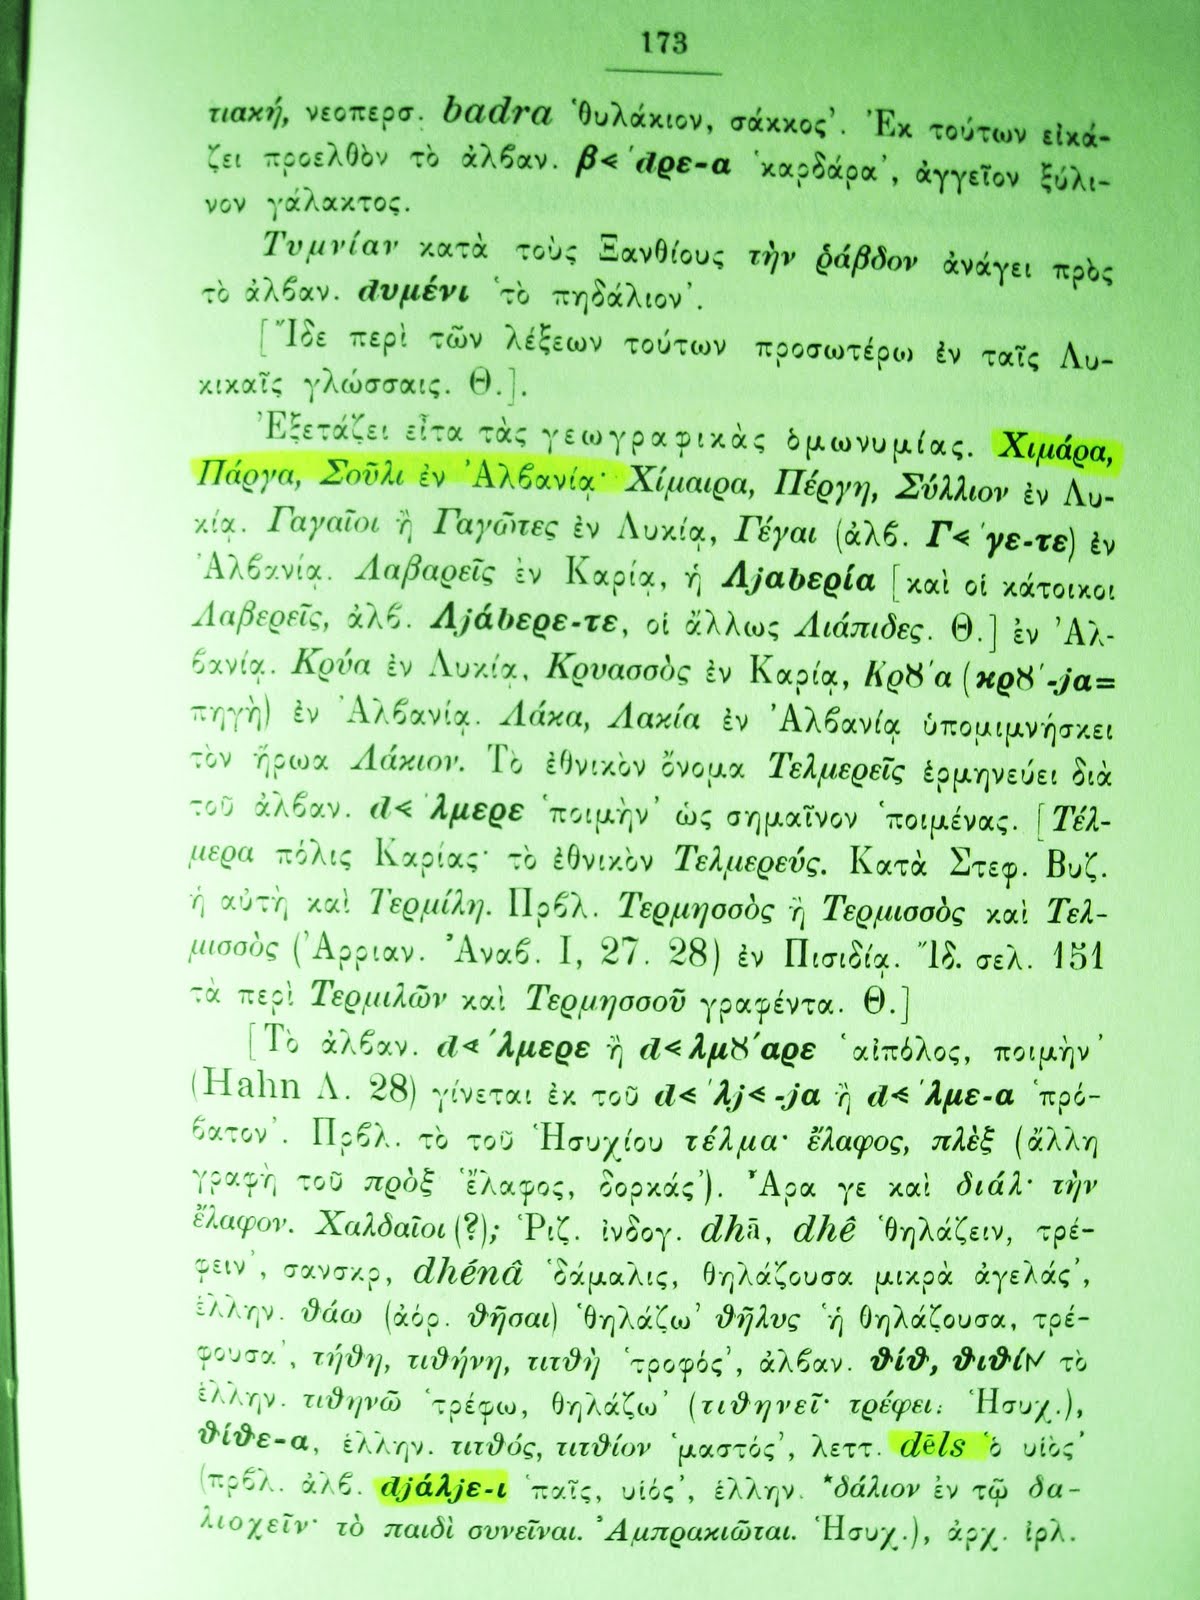 173
τιακή, νεοπερσ. badra ‘θυλάκιον, σάκκος’. Ἐκ τούτων εἰκά-
ζει προελθὸν τὸ ἀλβαν. β< ´dρε-α ‘καρδάρα’, ἀγγεῖον ξύλι-
νον γάλακτος.
Τυμνίαν κατὰ τοὺς Ξανθίους τὴν ῥάβδον ἀνάγει πρὸς
τὸ ἀλβαν. dυμένι ‘τὸ πηδάλιον’.
[Ἴδε περὶ τῶν λέξεων τούτων προσωτέρω ἐν ταῖς Λυ-
κικαῖς γλώσσαις. Θ.].
Ἐξετάζει εἶτα τὰς γεωγραφικὰς ὁμωνυμίας. Χιμάρα,
Πάργα, Σοῦλι ἐν Ἀλβανίᾳ· Χίμαιρα, Πέργη, Σύλλιον ἐν Λυ-
κίᾳ. Γαγαῖοι ἢ Γαγῶτες ἐν Λυκίᾳ, Γέγαι (ἀλβ. Γ< ´γε-τε) ἐν
Ἀλβανίᾳ. Λαβαρεῖς ἐν Καρίᾳ, ἡ Λjαbερία [καὶ οἱ κάτοικοι
Λαβερεῖς, ἀλβ. Λjάbερε-τε, οἱ ἄλλως Λιάπιδες. Θ.] ἐν Ἀλ-
βανίᾳ. Κρύα ἐν Λυκίᾳ, Κρυασσὸς ἐν Καρίᾳ, Κρȣ´α (κρȣ´-ja=
πηγὴ) ἐν Ἀλβανίᾳ. Λάκα, Λακία ἐν Ἀλβανίᾳ ὑπομιμνήσκει
τὸν ἥρωα Λάκιον. Τὸ ἐθνικὸν ὄνομα Τελμερεῖς ἑρμηνεύει διὰ
τοῦ ἀλβαν. d< ´λμερε ‘ποιμὴν’ ὡς σημαῖνον ‘ποιμένας. [Τέλ-
μερα πόλις Καρίας· τὸ ἐθνικὸν Τελμερεύς. Κατὰ Στεφ. Βυζ.
ἡ αὐτὴ καὶ Τερμίλη. Πρβλ. Τερμησσὸς ἢ Τερμισσὸς καὶ Τελ-
μισσὸς (Ἀρριαν. Ἀναβ. I, 27. 28) ἐν Πισιδίᾳ. Ἴδ. σελ. 151
τὰ περὶ Τερμιλῶν καὶ Τερμησσοῦ γραφέντα. Θ.]
[Τὸ ἀλβαν. d< ´λμερε ἢ d<λμȣ´αρε ‘αἰπόλος, ποιμὴν’
(Hahn Λ. 28) γίνεται ἐκ τοῦ d< ´λj<-ja ἢ d< ´λμε-α ‘πρό-
βατον’. Πρβλ. τὸ τοῦ Ἡσυχίου τέλμα· ἔλαφος, πλὲξ (ἄλλη
γραφὴ τοῦ πρὸξ ‘ἔλαφος, δορκάς’). Ἆρα γε καὶ διάλ· τὴν
ἔλαφον. Χαλδαῖοι (?); Ῥιζ. ἰνδογ. dhā, dhê ‘θηλάζειν, τρέ-
φειν’, σανσκρ, dhénâ ‘δάμαλις, θηλάζουσα μικρὰ ἀγελάς’,
ἑλλην. θάω (ἀόρ. θῆσαι) ‘θηλάζω’ θῆλυς ‘ἡ θηλάζουσα, τρέ-
φουσα’, τήθη, τιθήνη, τιτθὴ ‘τροφός’, ἀλβαν. θίθ, θιθίν τὸ
ἑλλην. τιθηνῶ ‘τρέφω, θηλάζω’ (τιθηνεῖ· τρέφει: Ἡσυχ.),
θίθε-α, ἑλλην. τιτθός, τιτθίον ‘μαστός’, λεττ. dēls ‘ὁ υἱὸς’
(πρβλ. ἀλβ. djάλjε-ι ‘παῖς, υἱός’, ἑλλην. *δάλιον ἐν τῷ δα-
λιοχεῖν· τὸ παιδὶ συνεῖναι. Ἀμπρακιῶται. Ἡσυχ.), ἀρχ. ἰρλ.